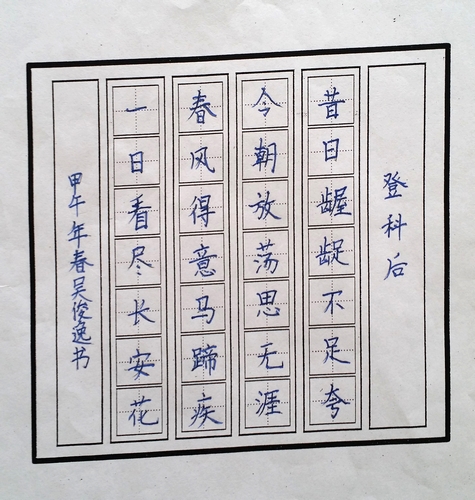 登科后
昔日龌龊不足夸
今朝放荡思无涯
春风得意马蹄疾
一日看尽长安花
甲午年春吴俊逸书